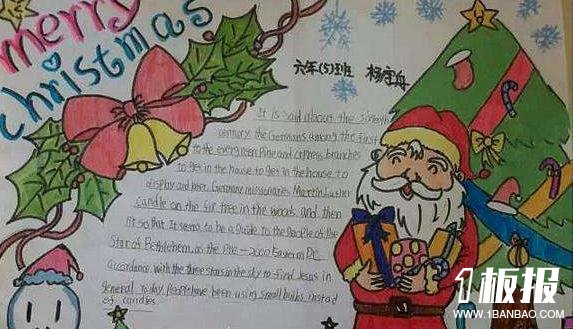 merry
christmas
六年(5)班
It is said about the sixteenth
century the Germans among the first
to the evergreen Pine and cypress branches
to get in the house to get in the house to
display and later, Germans missionaries Martin Luther
candle on the fir tree in the woods and then
it so that It seems to be a Guide to the people of the
Star of Bethlehem, as the Pre-2000 Eastern Dr.
accordance with the three stars in the sky to find Jesus in
general Today, People have been using small bulbs instead
of candles.
1板报
WWW.1BANBAO.COM